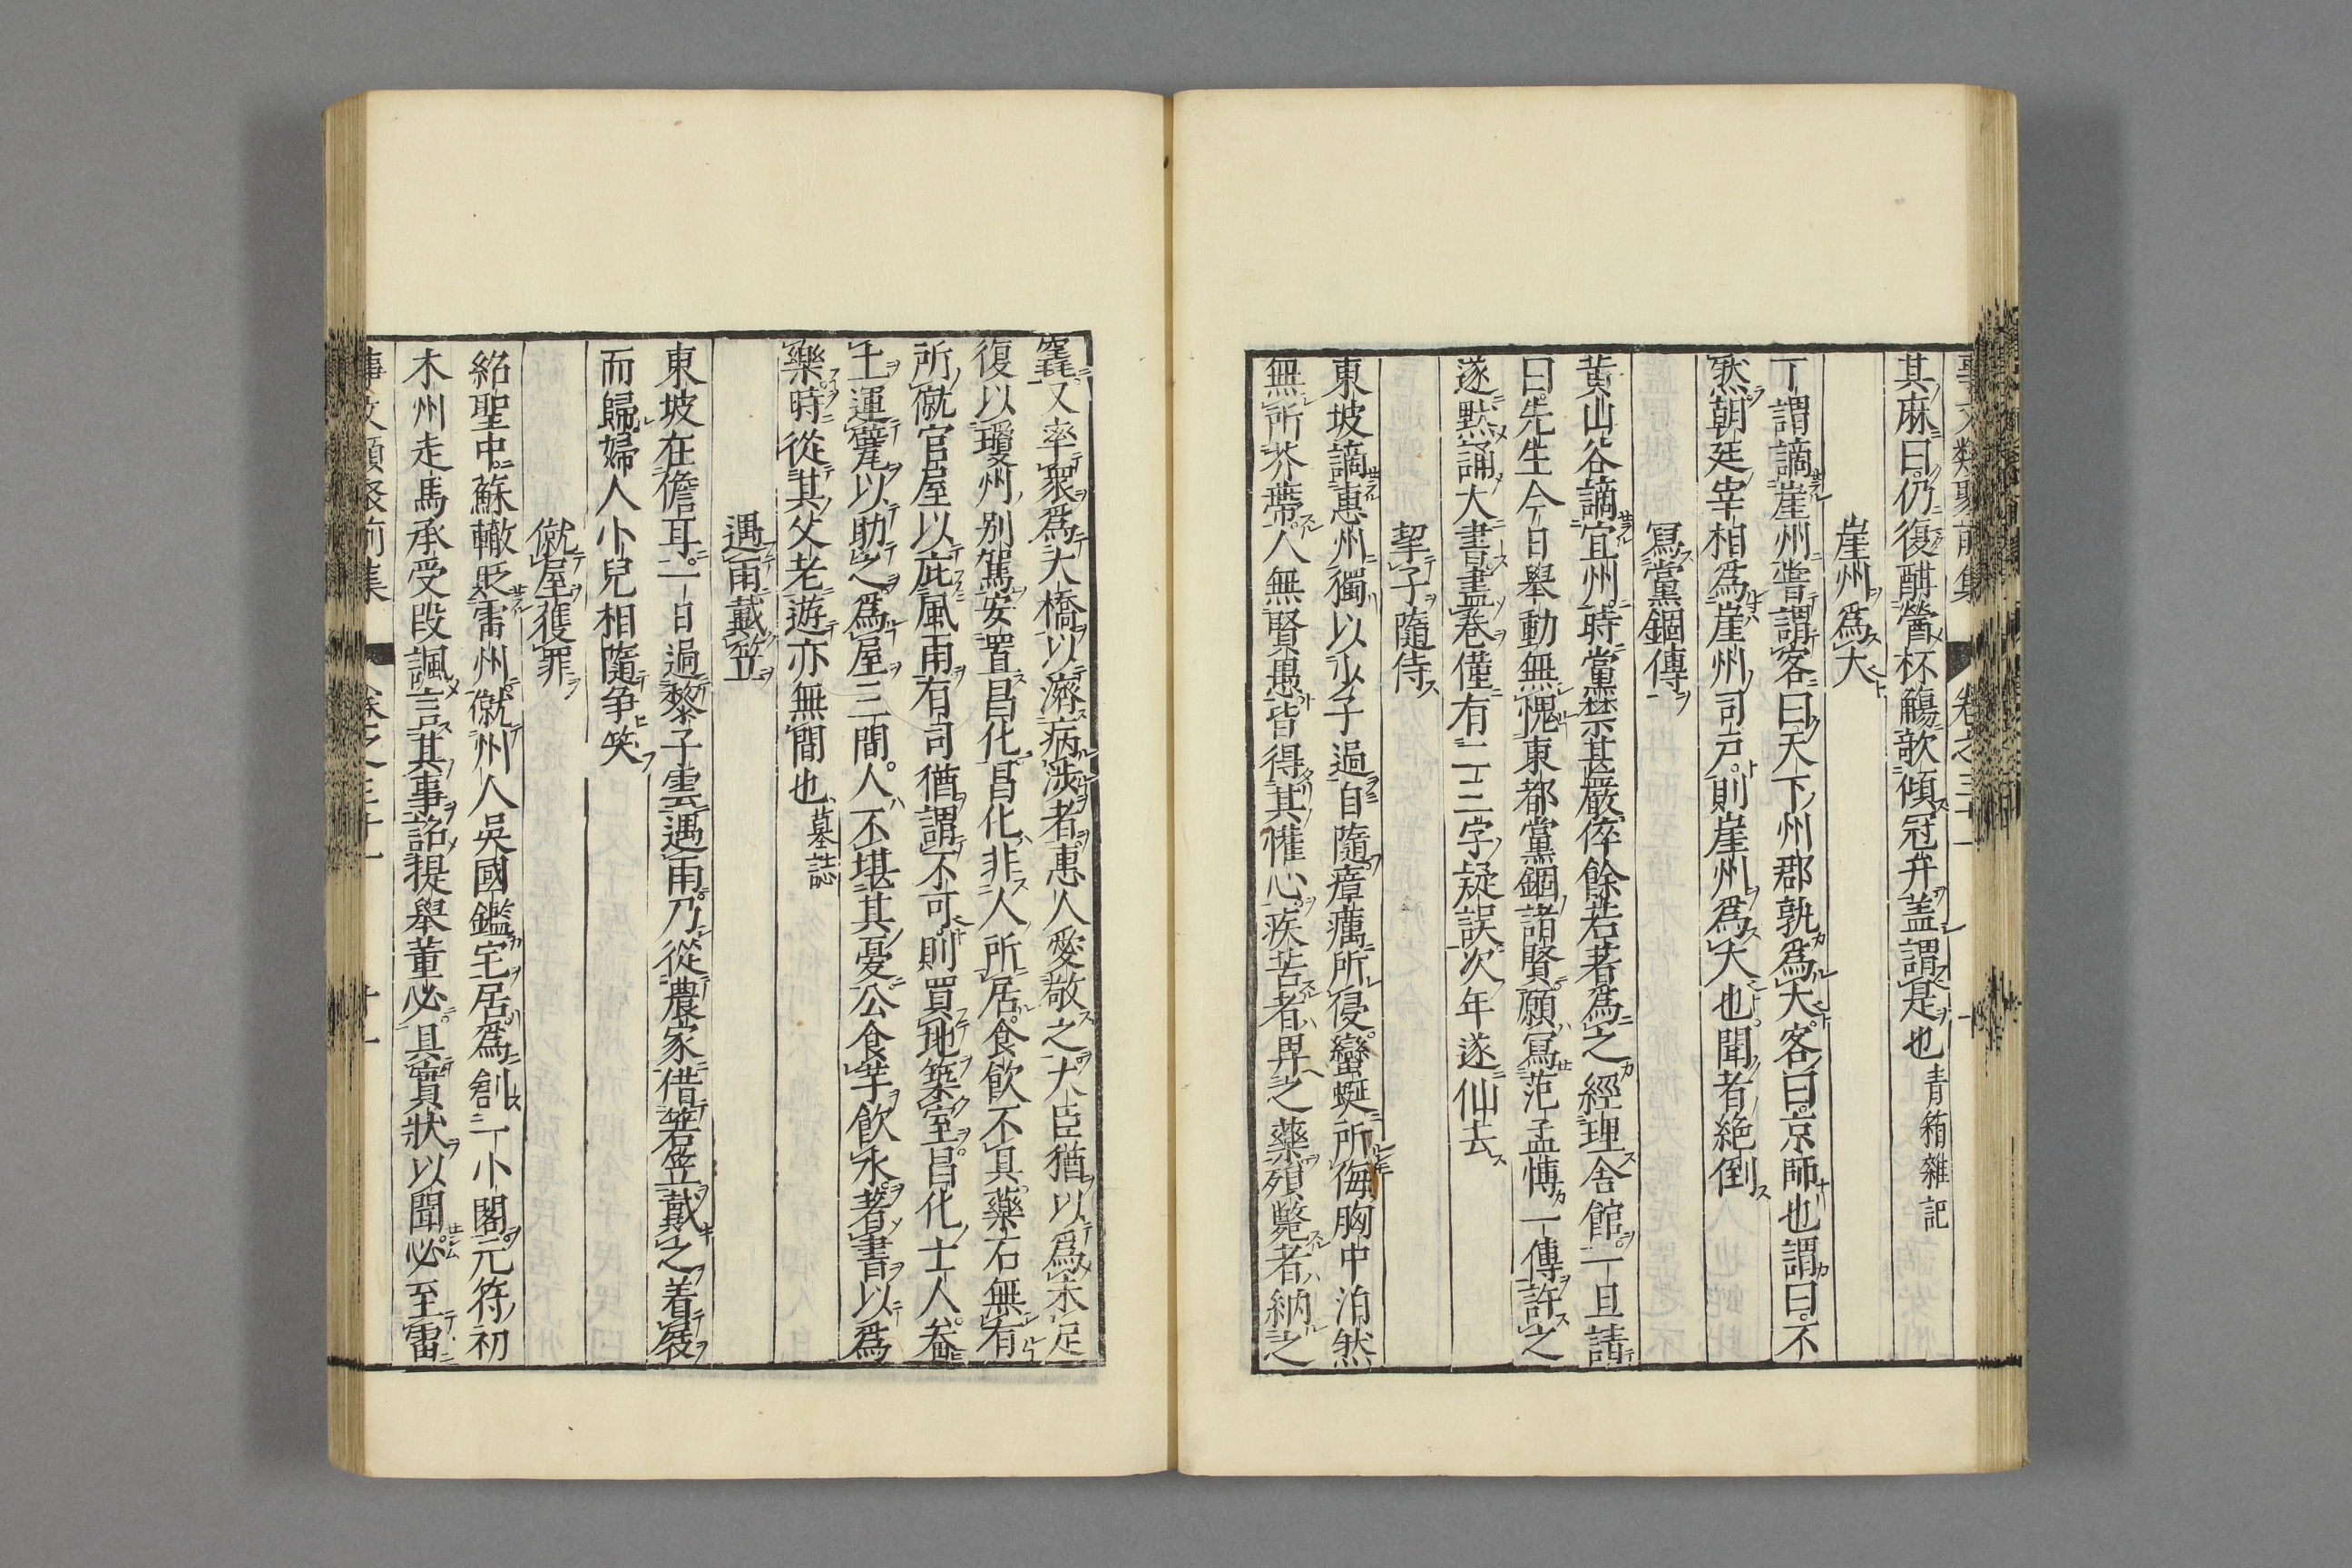 事文類聚前集 卷之三十一 十
其麻曰仍復酣營杯觴歌傾冠弁盖謂是也 青箱雜記
崖州爲大
丁謂謫崖州嘗謂客曰天下州郡孰爲大客曰京師也謂曰不
然朝廷宰相爲崖州司户則崖州爲大也聞者絶倒
冩黨錮傳
黄山谷謫宜州時黨禁甚嚴倅餘若著爲之經理舍館一旦請
曰先生今日舉動無愧東都黨錮諸賢願冩范孟博一傳許之
遂默誦大書盡卷僅有二三字疑誤次年遂仙去
挈子隨侍
東坡謫惠州獨以少子過自隨瘴癘所侵蠻蜒所侮胸中泊然
無所芥蔕人無賢愚皆得其懽心疾苦者畀之藥殞斃者納之
窆又率衆爲大橋以濟病涉者惠人愛敬之大臣猶以爲未足
復以瓊州别駕安置昌化昌化非人所居食飲不具藥石無有
所僦官屋以庇風雨有司猶謂不可則買地築室昌化士人畚
土運甓以助之爲屋三間人不堪其憂公食芋飲水著書以爲
樂時從其父老遊亦無間也 墓誌
遇雨戴笠
東坡在儋耳一日過黎子雲遇雨乃從農家借箬笠戴之着屐
而歸婦人小兒相隨争笑
僦屋獲罪
紹聖中蘇轍貶雷州僦州人吳國鑑宅居爲創一小閣元符初
木州走馬承受段諷言其事詔提舉董必具實狀以聞必至雷
事文類聚前集 卷之三十一 十一